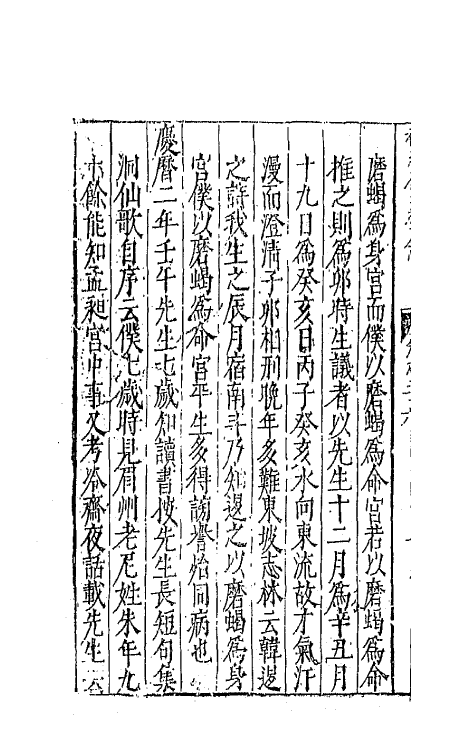 磨蝎爲身宮而僕以磨蝎爲命宮若以磨蝎爲命
推之則爲卯時生議者以先生十二月爲辛丑月
十九日爲癸亥日丙子癸亥水向東流故才氣汗
漫而澄清子卯相刑晚年多難東坡志林云韓退
之詩我生之辰月宿南斗乃知退之以磨蝎爲身
宮僕以磨蝎爲命宮平生多得謗譽殆同病也
慶曆二年壬午先生七歲知讀書按先生長短句集
洞仙歌自序云僕七歲時見眉州老尼姓朱年九
十餘能知孟昶宮中事又考冷齋夜話載先生云